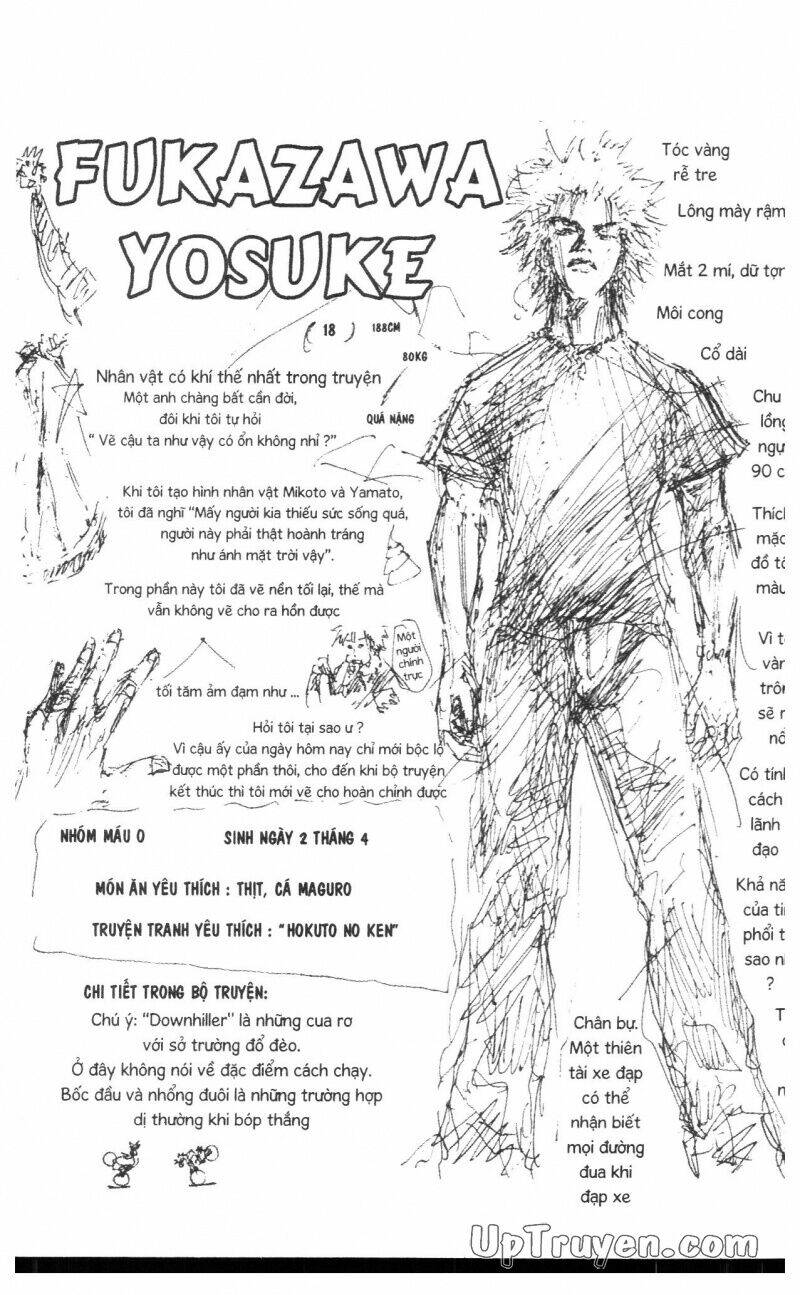 FUKAZAWA
YOSUKE
( 18 )
188CM
80KG
QUÁ NẶNG
Nhân vật có khí thế nhất trong truyện
Một anh chàng bất cần đời,
đôi khi tôi tự hỏi
“ Vẽ cậu ta như vậy có ổn không nhỉ ?”
Khi tôi tạo hình nhân vật Mikoto và Yamato,
tôi đã nghĩ “Mấy người kia thiếu sức sống quá,
người này phải thật hoành tráng
như ánh mặt trời vậy”.
Trong phần này tôi đã vẽ nền tối lại, thế mà
vẫn không vẽ cho ra hồn được
tối tăm ảm đạm như ...
Một
người
chính
trực
Hỏi tôi tại sao ư ?
Vì cậu ấy của ngày hôm nay chỉ mới bộc lộ
được một phần thôi, cho đến khi bộ truyện
kết thúc thì tôi mới vẽ cho hoàn chỉnh được
NHÓM MÁU O
SINH NGÀY 2 THÁNG 4
MÓN ĂN YÊU THÍCH : THỊT, CÁ MAGURO
TRUYỆN TRANH YÊU THÍCH : “HOKUTO NO KEN”
CHI TIẾT TRONG BỘ TRUYỆN:
Chú ý: “Downhiller” là những cua rơ
với sở trường đổ đèo.
Ở đây không nói về đặc điểm cách chạy.
Bốc đầu và nhổng đuôi là những trường hợp
dị thường khi bóp thắng
Tóc vàng
rễ tre
Lông mày rậm
Mắt 2 mí, dữ tợn
Môi cong
Cổ dài
Chu
lồng
ngự
90 c
Thích
mặc
đồ tố
màu
Vì t
vàn
trôn
sẽ n
nổ
Có tính
cách
lãnh
đạo
Khả nă
của ti
phổi t
sao n
?
T
Chân bự.
Một thiên
tài xe đạp
có thể
nhận biết
mọi đường
đua khi
đạp xe
UpTruyen.com